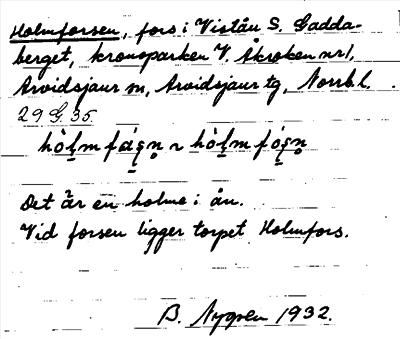 Holmforsen, fors i Vistån S. Gadda-
berget, kronoparken V. Akroken nr 1,
Arvidsjaur sn, Arvidsjaur tg, Norrb. l.
29 G 35
Det är en holme i ån.
Vid forsen ligger torpet Holmfors.
B. Nygren 1932.